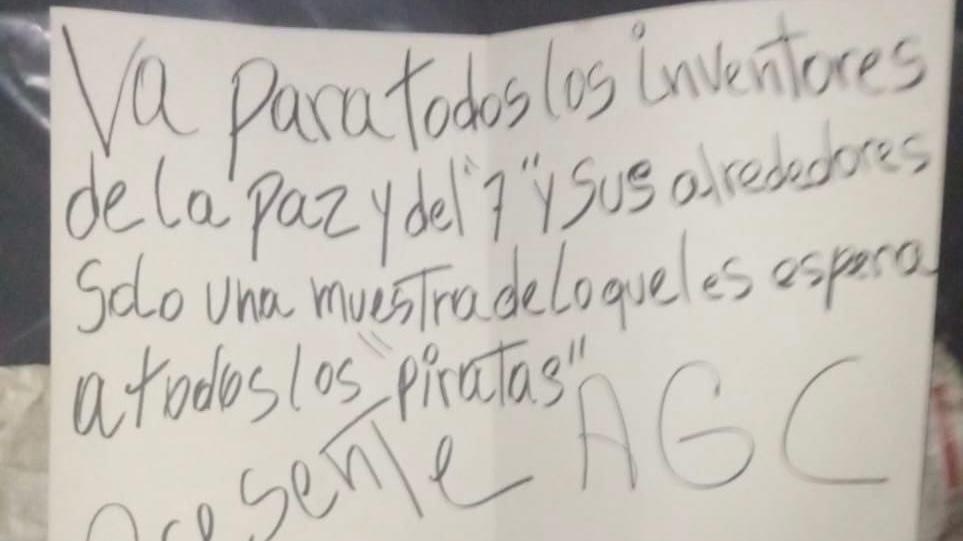 Va para todos los inventores
de la paz y del "7" y sus alrededores
Solo una muestra de lo que les espera
a todos los "piratas"
Presente AGC